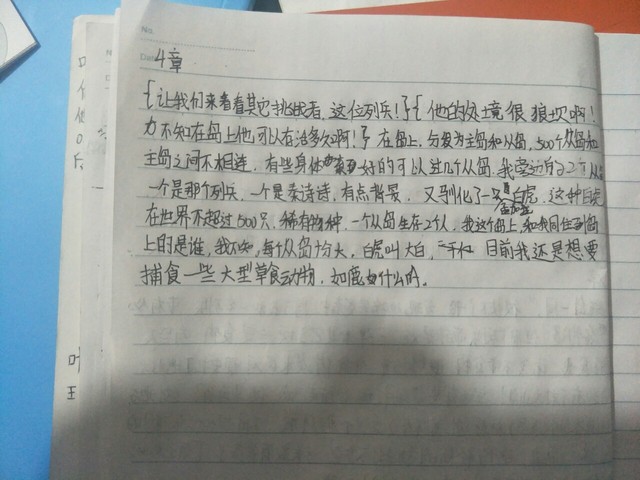 No.
Date
4章
{让我们来看看其它挑战者,这位列兵!}{他的处境很狼坎啊!
力不知在岛上他可以存活多久啊!}在岛上,分为主岛和从岛,500个从岛和
主岛之间不相连,有些身体素质好的可以过几个从岛,我旁边的2个从
一个是那个列兵,一个是秦诗诗,有点背景,又驯化了一只白虎,这种白虎
孟加拉
在世界不超过500只,稀有物种,一个从岛生存2个人,我这个岛上,和我同住到岛
上的是谁,我不知,每个从岛十分大,白虎叫大白, 目前我还是想要
捕食一些大型草食动物,如鹿由什么的.
叶
王